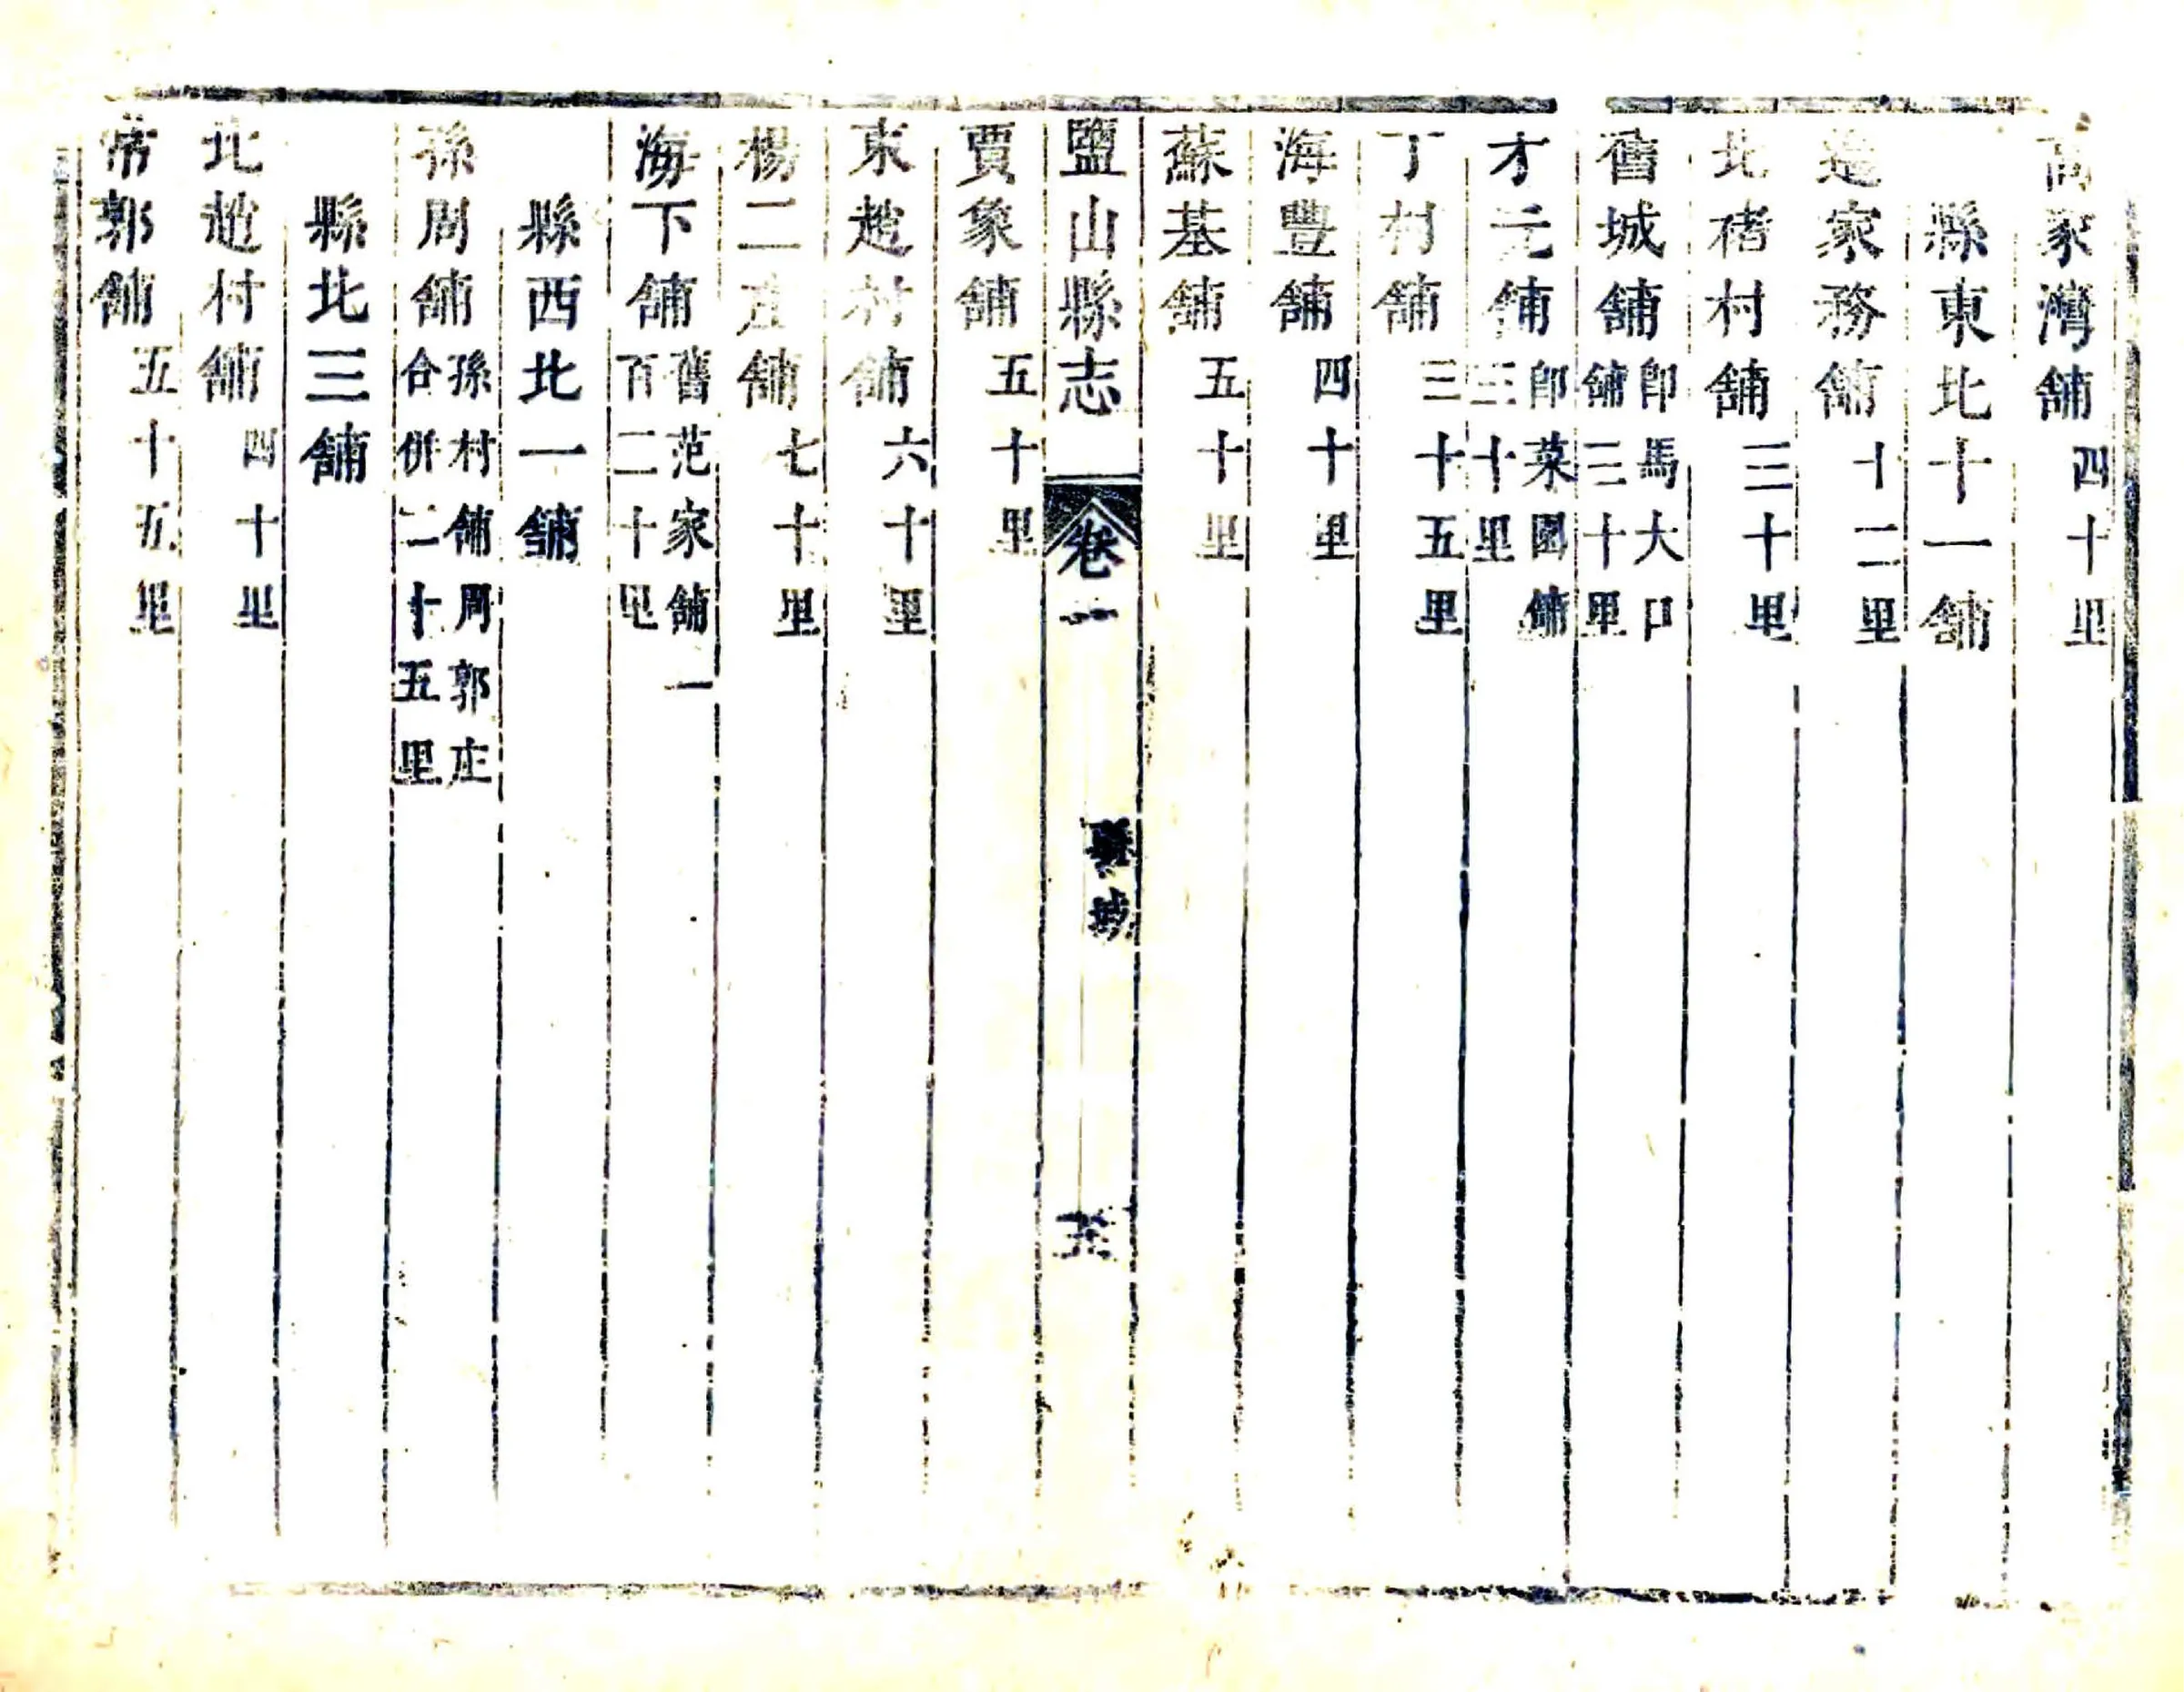 高家灣舖四十里
縣東北十一舖
家務舖十二里
北禇村舖三十里
舊城舖即馬大口舖三十里
才元舖即菜園舖三十里
丁村舖三十五里
海豐舖四十里
蘇基舖五十里
鹽山縣志 卷一
賈象舖五十里
東趙村舖六十里
楊二庄舖七十里
海下舖舊范家舖一百二十里
縣西北一舖
孫周舖孫村舖周郭庄合併二十五里
縣北三舖
北趙村舖四十里
常郭舖五十五里